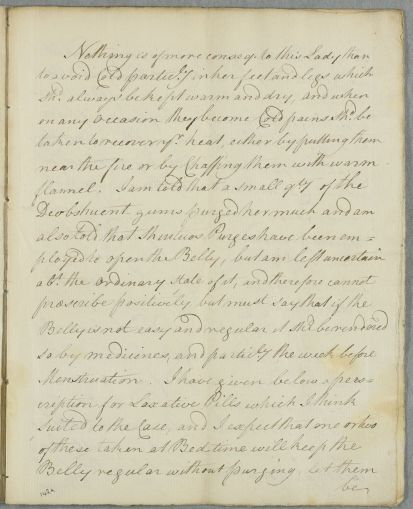 Nothing is of more conseq. to this Lady than
to avoid Cold partic:ly in her feet and legs which
Shd. always be kept warm and dry, and when
on any Occasion they become Cold pains Shd. be
taken to recover yr. heat, either by putting them
near the fire or by Chaffing them with warm
flannel. I am told that a small qty of the
Deobstruent gums purged her much and am
also told that Shintuos Purges have been em=
ployed to open the Belly, but am left uncertain
abt. the ordinary State of it, and therefore cannot
prescribe positively but must say that if the
Belly is not easy and regular it Shd. be rendered
so by medicines, and partic:ly the week before
Menstruation. I have given below a pres=
cription for Laxative Pills which I think
Suited to the Case, and I expect that one or two
of these taken at Bedtime will keep the
Belly regular without purging, let them
be